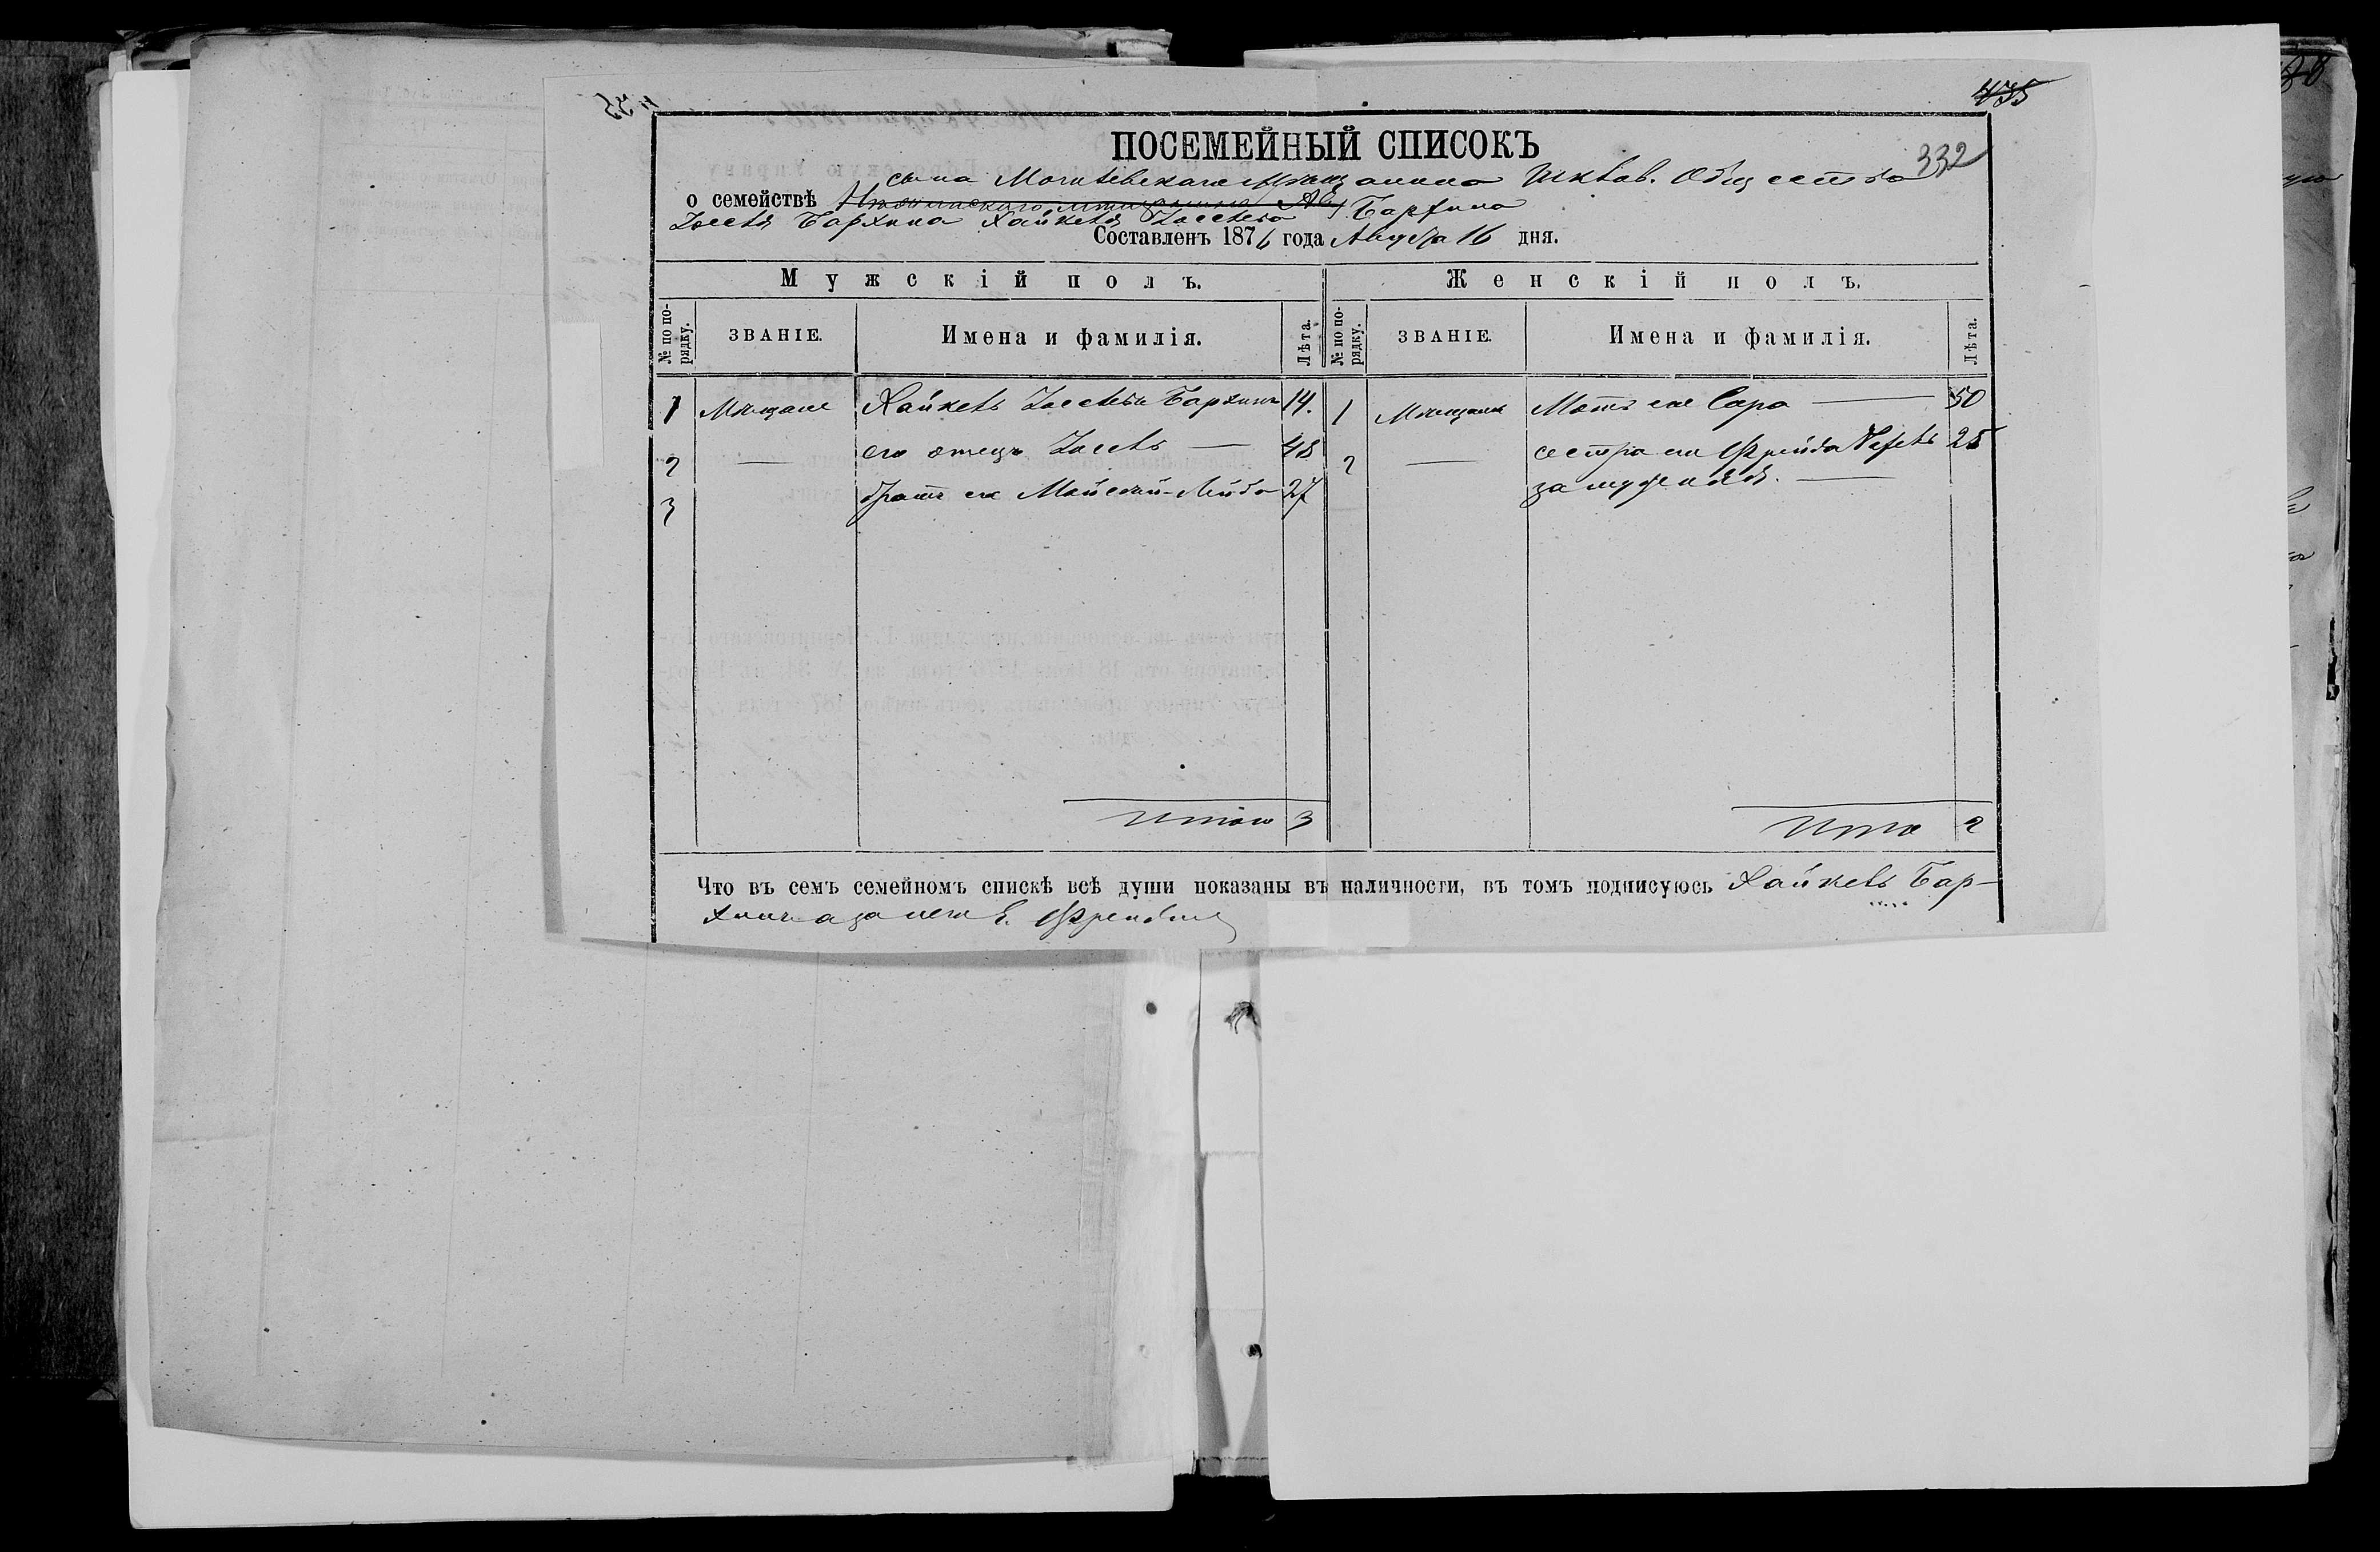 435
ПОСЕМЕЙНЫЙ СПИСОКЪ
332
сына Могилевскаго мѣщанина Шклов. Общества
о семействѣ
Іоселя Бархина Хайкеля Іоселева Бархина
Составленъ 1876 года Августа 16 дня.
Мужскій полъ. Женскій полъ.
№ по порядку. ЗВАНІЕ. Имена и фамилія. Лѣта. № по порядку. ЗВАНІЕ. Имена и фамилія. Лѣта.
1 Мѣщане Хайкель Іоселевъ Бархинъ 14. 1 Мѣщанки Мать его Сара — 50
2 — его отецъ Іосель — 48 2 — сестра его Фрейда 25
3 братъ его 27 замужняя. —
Итого 3 Итого 2
Что въ семъ семейномъ спискѣ всѣ души показаны въ наличности, въ томъ подписуюсь Хайкель Бар-
хинъ а за него